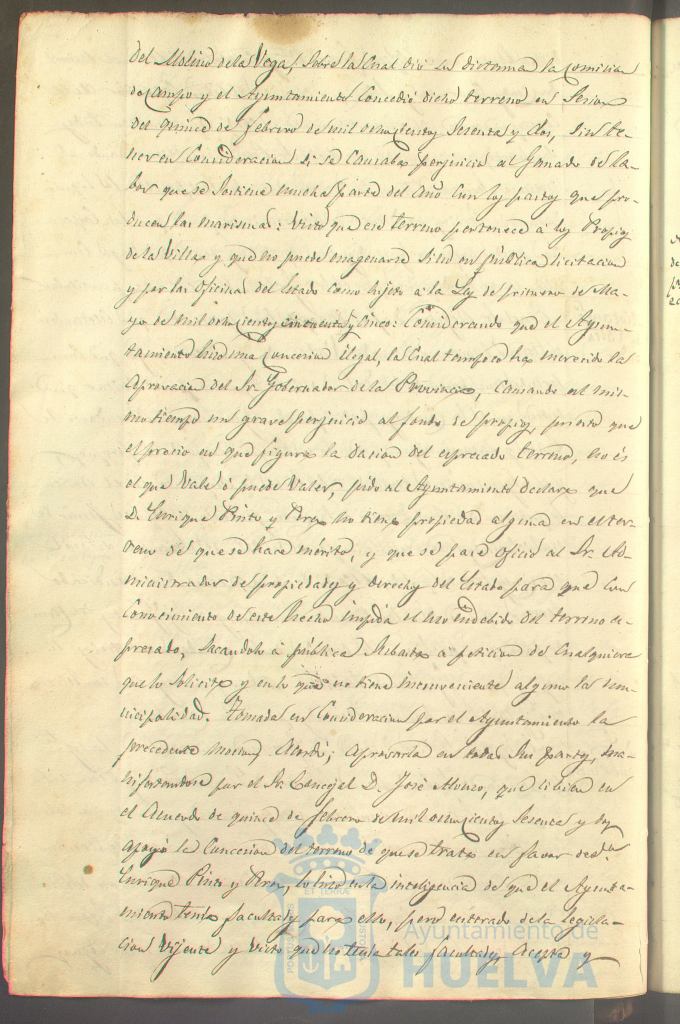 del Molino de la Vega, sobre la cual dió su dictamen la comision
de campo y el Ayuntamiento concedió dicho terreno en sesion
del quince de febrero de mil ochocientos sesenta y dos, sin te-
ner en consideracion si se causaba perjuicio al ganado de la-
bor que se sostiene mucha parte del año con los pastos que pro-
ducen las marismas: Visto que ese terreno pertenece á los Propios
de la Villa y que no puede enagenarse sino en pública licitacion
y por las oficinas del Estado como sujeto á la Ley de primero de Ma-
yo de mil ochocientos cincuenta y cinco: Considerando que el Ayun-
tamiento hizo una concesion ilegal, la cual tampoco ha merecido la
aprovacion del Sr. Gobernador de la Provincia, causando al mis-
mo tiempo un grave perjuicio al fondo de propios, puesto que
el precio en que figura la dacion del espresado terreno, no és
el que vale ó puede valer, pido al Ayuntamiento declare que
D. Enrique Pinto y Perez no tiene propiedad alguna en el ter-
reno de que se hace mérito, y que se pase oficio al Sr. Ad-
ministrador de propiedades y derechos del Estado para que con
conocimiento de este hecho impida el uso indebido del terreno es-
presado, sacandolo á pública subasta á peticion de cualquiera
que lo solicite y en lo que no tiene inconveniente alguno la mu-
nicipalidad. Tomada en consideracion por el Ayuntamiento la
precedente mocion, Acordó; aprovarla en todas sus partes, ma-
nifestandose por el Sr. Concejal D. José Alonso, que si bien en
el Acuerdo de quince de febrero de mil ochocientos sesenta y dos
apoyó la concesion del terreno de que se trata en favor de D.n
Enrique Pinto y Perez, lo hizo en la inteligencia de que el Ayunta-
miento tenia facultades para ello, pero enterado de la legisla-
cion vijente y visto que no tenia tales facultades, acepta y
Ayuntamiento de
HUELVA